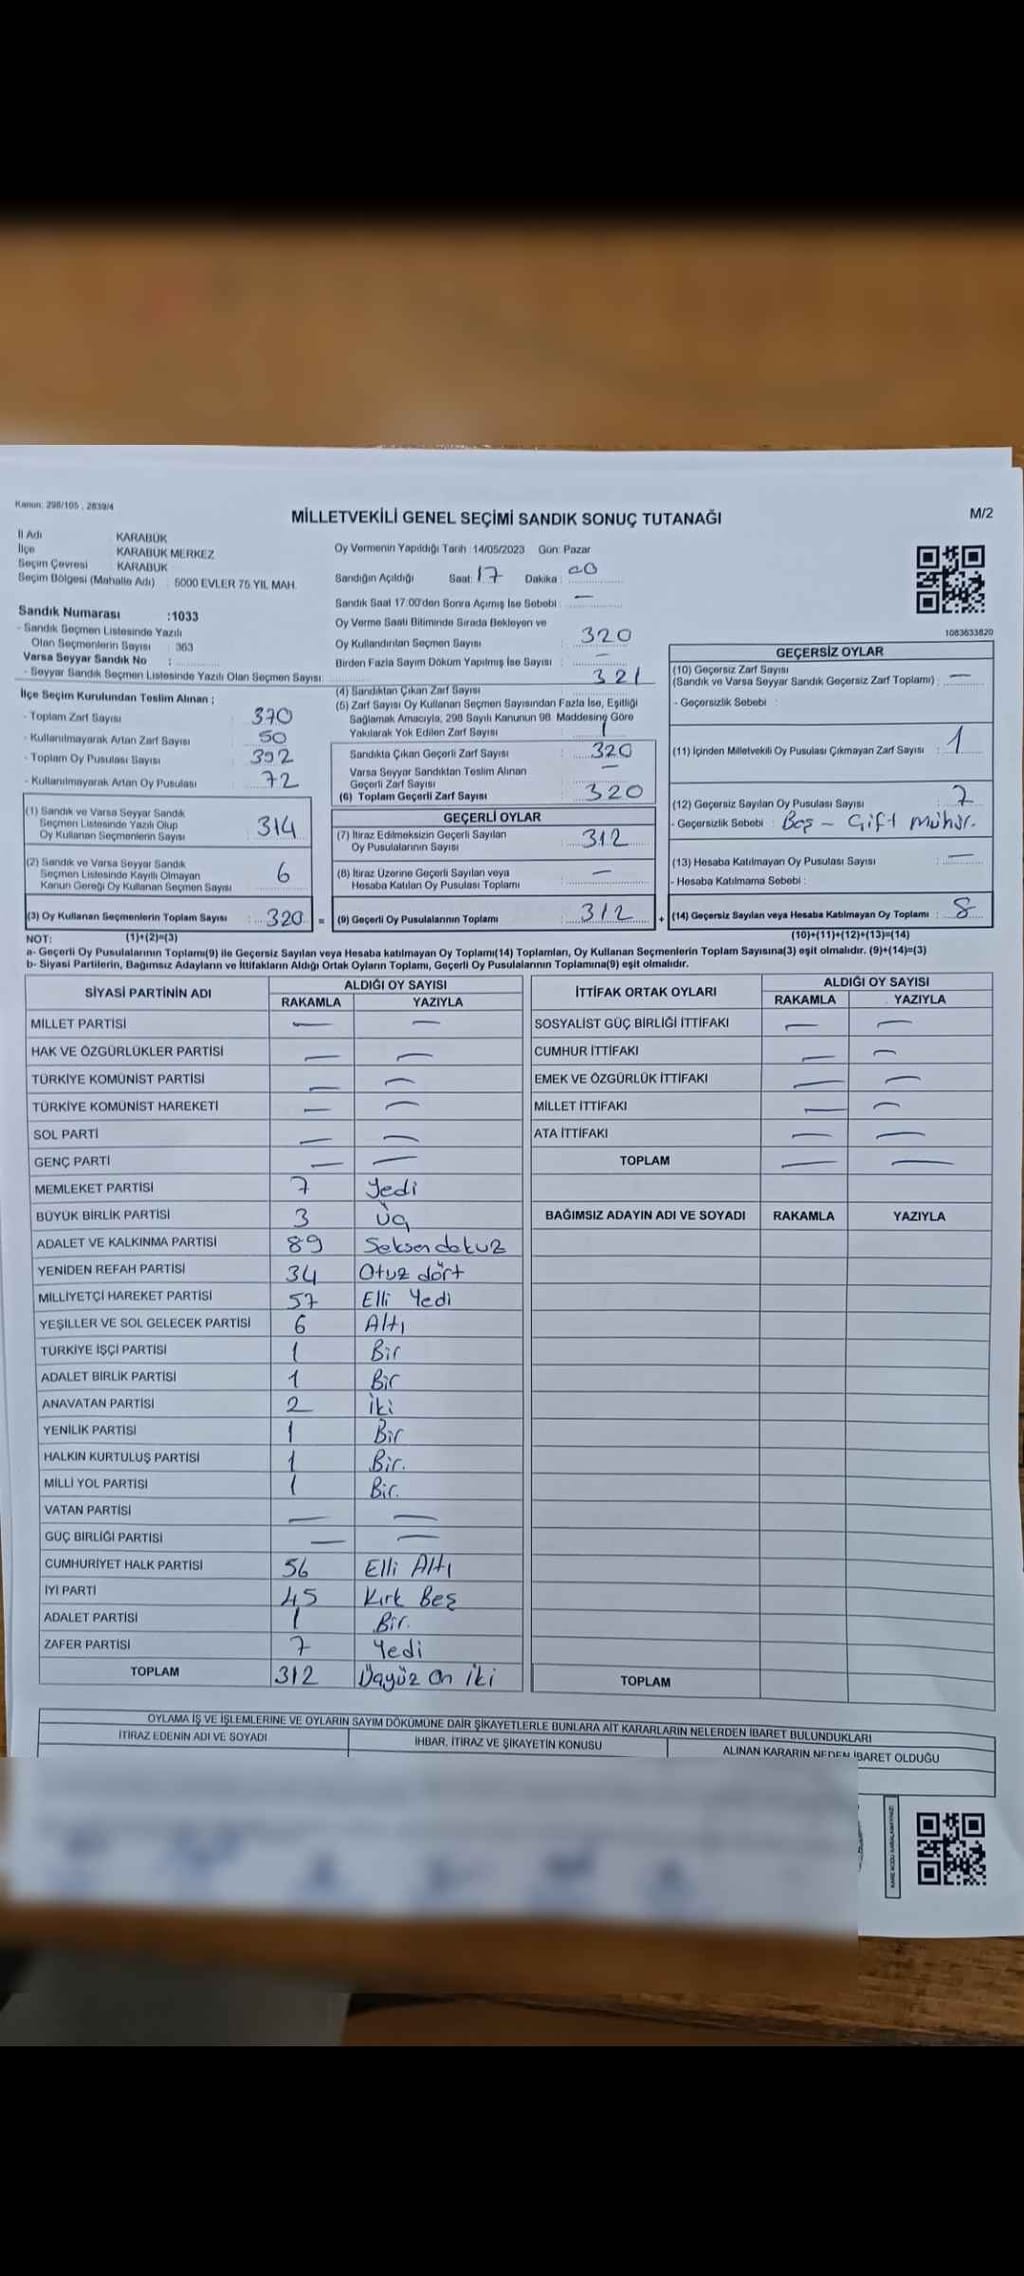 Kanun: 298/105 , 2839/4
MİLLETVEKİLİ GENEL SEÇİMİ SANDIK SONUÇ TUTANAĞI
M/2
İl Adı KARABÜK
İlçe KARABÜK MERKEZ
Seçim Çevresi KARABÜK
Seçim Bölgesi (Mahalle Adı) : 5000 EVLER 75 YIL MAH.
Sandık Numarası :1033
- Sandık Seçmen Listesinde Yazılı
Olan Seçmenlerin Sayısı : 363
Varsa Seyyar Sandık No :
- Seyyar Sandık Seçmen Listesinde Yazılı Olan Seçmen Sayısı:
İlçe Seçim Kurulundan Teslim Alınan ;
- Toplam Zarf Sayısı 370
- Kullanılmayarak Artan Zarf Sayısı 50
- Toplam Oy Pusulası Sayısı 392
- Kullanılmayarak Artan Oy Pusulası 72
(1) Sandık ve Varsa Seyyar Sandık
Seçmen Listesinde Yazılı Olup
Oy Kullanan Seçmenlerin Sayısı 314
(2) Sandık ve Varsa Seyyar Sandık
Seçmen Listesinde Kayıtlı Olmayan
Kanun Gereği Oy Kullanan Seçmen Sayısı 6
(3) Oy Kullanan Seçmenlerin Toplam Sayısı : 320 =
Oy Vermenin Yapıldığı Tarih :14/05/2023 Gün: Pazar
Sandığın Açıldığı Saat: 17 Dakika : 00
Sandık Saat 17:00'den Sonra Açılmış İse Sebebi : —
Oy Verme Saati Bitiminde Sırada Bekleyen ve
Oy Kullandırılan Seçmen Sayısı : 320
Birden Fazla Sayım Döküm Yapılmış İse Sayısı : —
(4) Sandıktan Çıkan Zarf Sayısı : 321
(5) Zarf Sayısı Oy Kullanan Seçmen Sayısından Fazla İse, Eşitliği
Sağlamak Amacıyla, 298 Sayılı Kanunun 98. Maddesine Göre
Yakılarak Yok Edilen Zarf Sayısı 1
Sandıkta Çıkan Geçerli Zarf Sayısı 320
Varsa Seyyar Sandıktan Teslim Alınan
Geçerli Zarf Sayısı —
(6) Toplam Geçerli Zarf Sayısı 320
GEÇERLİ OYLAR
(7) İtiraz Edilmeksizin Geçerli Sayılan
Oy Pusulalarının Sayısı 312
(8) İtiraz Üzerine Geçerli Sayılan veya
Hesaba Katılan Oy Pusulası Toplamı —
(9) Geçerli Oy Pusulalarının Toplamı : 312 +
1083633820
GEÇERSİZ OYLAR
(10) Geçersiz Zarf Sayısı
(Sandık ve Varsa Seyyar Sandık Geçersiz Zarf Toplamı) : —
- Geçersizlik Sebebi :
(11) İçinden Milletvekili Oy Pusulası Çıkmayan Zarf Sayısı : 1
(12) Geçersiz Sayılan Oy Pusulası Sayısı : 7
- Geçersizlik Sebebi : Boş – Çift mühür.
(13) Hesaba Katılmayan Oy Pusulası Sayısı : —
- Hesaba Katılmama Sebebi :
(14) Geçersiz Sayılan veya Hesaba Katılmayan Oy Toplamı : 8
NOT: (1)+(2)=(3) (10)+(11)+(12)+(13)=(14)
a- Geçerli Oy Pusulalarının Toplamı(9) ile Geçersiz Sayılan veya Hesaba katılmayan Oy Toplamı(14) Toplamları, Oy Kullanan Seçmenlerin Toplam Sayısına(3) eşit olmalıdır. (9)+(14)=(3)
b- Siyasi Partilerin, Bağımsız Adayların ve İttifakların Aldığı Ortak Oyların Toplamı, Geçerli Oy Pusulalarının Toplamına(9) eşit olmalıdır.
SİYASİ PARTİNİN ADI ALDIĞI OY SAYISI
RAKAMLA YAZIYLA
MİLLET PARTİSİ — —
HAK VE ÖZGÜRLÜKLER PARTİSİ — —
TÜRKİYE KOMÜNİST PARTİSİ — —
TÜRKİYE KOMÜNİST HAREKETİ — —
SOL PARTİ — —
GENÇ PARTİ — —
MEMLEKET PARTİSİ 7 Yedi
BÜYÜK BİRLİK PARTİSİ 3 üç
ADALET VE KALKINMA PARTİSİ 89 Seksendokuz
YENİDEN REFAH PARTİSİ 34 Otuz dört
MİLLİYETÇİ HAREKET PARTİSİ 57 Elli Yedi
YEŞİLLER VE SOL GELECEK PARTİSİ 6 Altı
TÜRKİYE İŞÇİ PARTİSİ 1 Bir
ADALET BİRLİK PARTİSİ 1 Bir
ANAVATAN PARTİSİ 2 iki
YENİLİK PARTİSİ 1 Bir
HALKIN KURTULUŞ PARTİSİ 1 Bir.
MİLLİ YOL PARTİSİ 1 Bir.
VATAN PARTİSİ — —
GÜÇ BİRLİĞİ PARTİSİ — —
CUMHURİYET HALK PARTİSİ 56 Elli Altı
İYİ PARTİ 45 Kırk Beş
ADALET PARTİSİ 1 Bir.
ZAFER PARTİSİ 7 Yedi
TOPLAM 312 Üçyüz on iki
İTTİFAK ORTAK OYLARI ALDIĞI OY SAYISI
RAKAMLA YAZIYLA
SOSYALİST GÜÇ BİRLİĞİ İTTİFAKI — —
CUMHUR İTTİFAKI — —
EMEK VE ÖZGÜRLÜK İTTİFAKI — —
MİLLET İTTİFAKI — —
ATA İTTİFAKI — —
TOPLAM — —
BAĞIMSIZ ADAYIN ADI VE SOYADI RAKAMLA YAZIYLA
TOPLAM
OYLAMA İŞ VE İŞLEMLERİNE VE OYLARIN SAYIM DÖKÜMÜNE DAİR ŞİKAYETLERLE BUNLARA AİT KARARLARIN NELERDEN İBARET BULUNDUKLARI
İTİRAZ EDENİN ADI VE SOYADI İHBAR, İTİRAZ VE ŞİKAYETİN KONUSU ALINAN KARARIN NEDEN İBARET OLDUĞU
KARE KODU KARALAMAYINIZ!